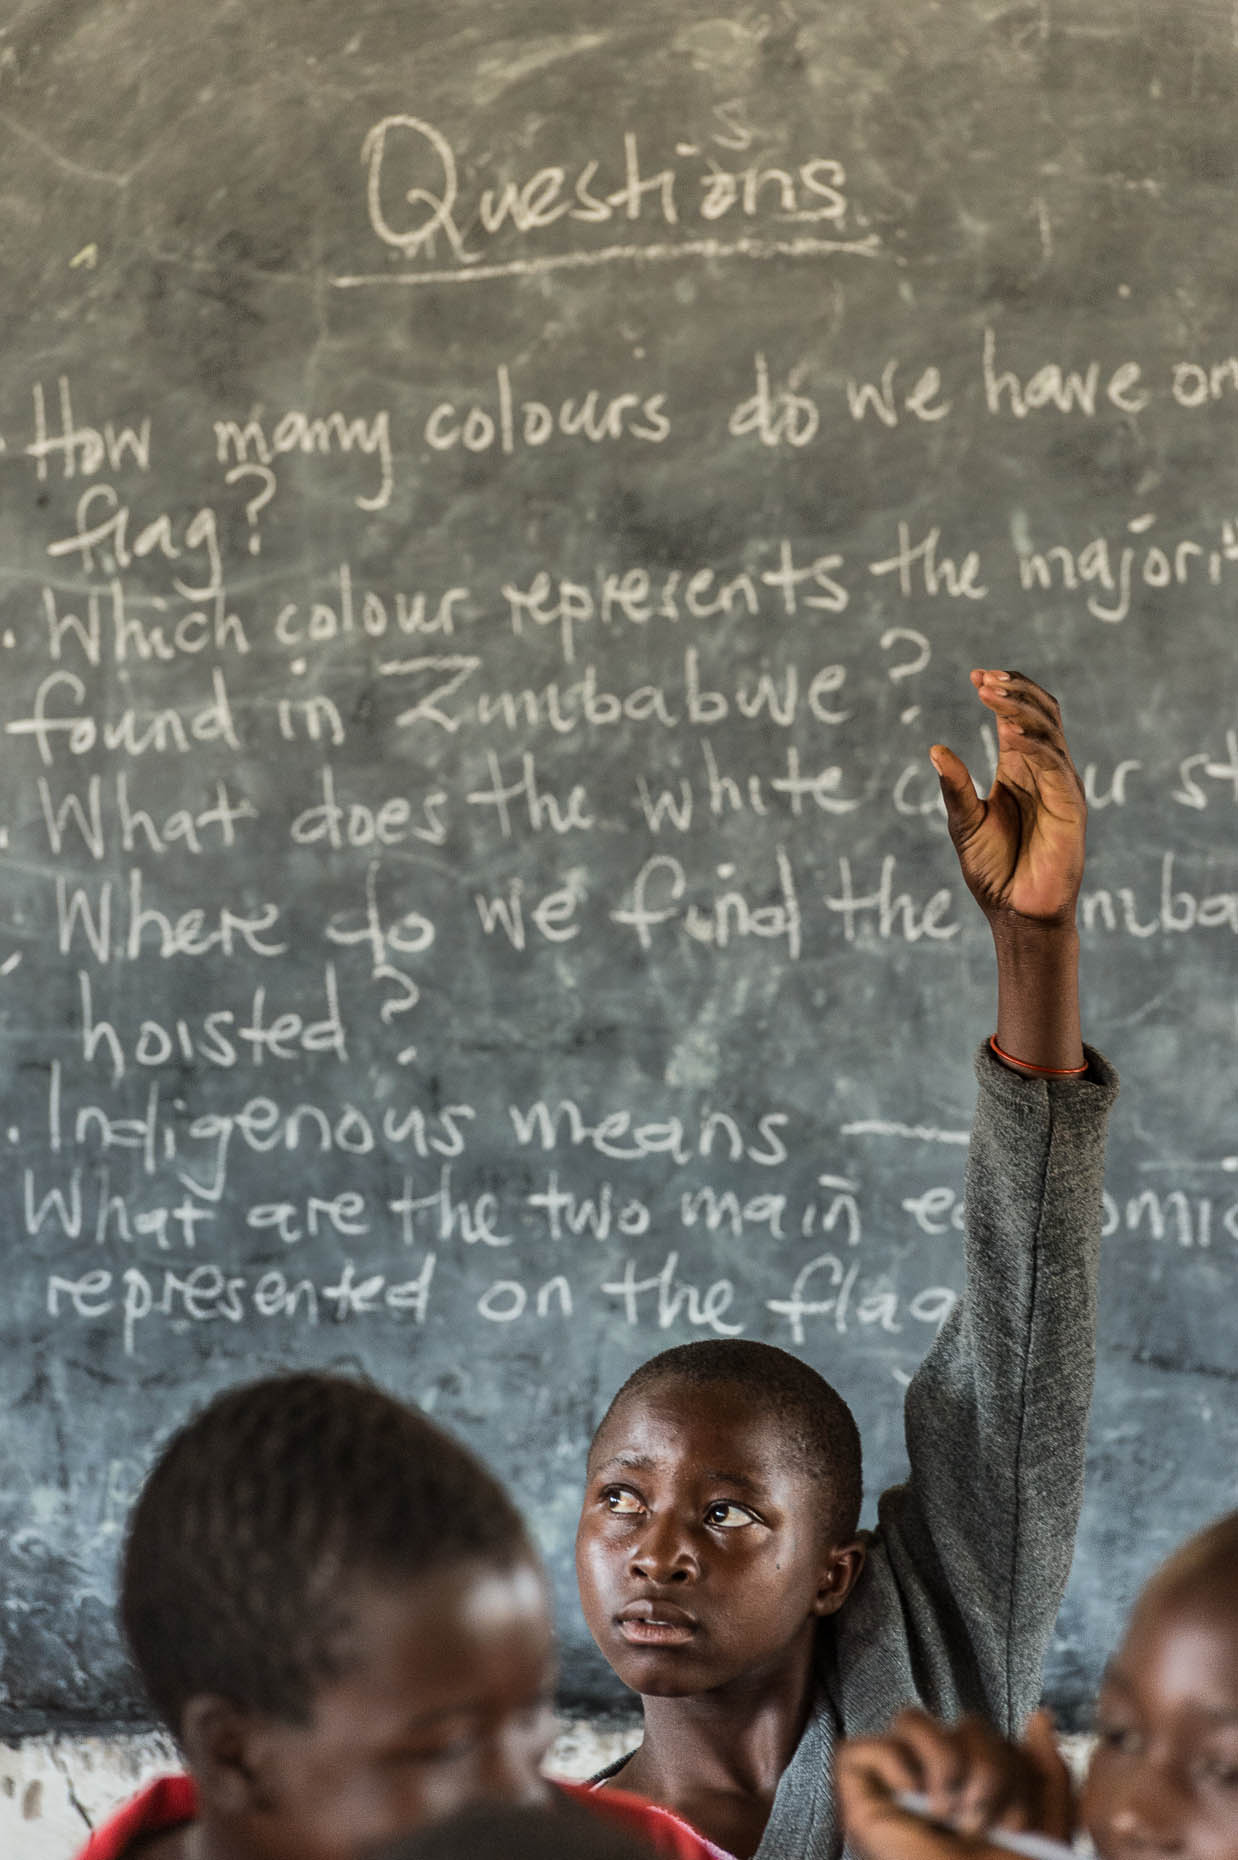 Questions
How many colours do we have on
flag?
Which colour represents the majorit
found in Zimbabwe?
What does the white colour st
Where do we find the Zimba
hoisted?
Indigenous means —
What are the two main economic
represented on the flag